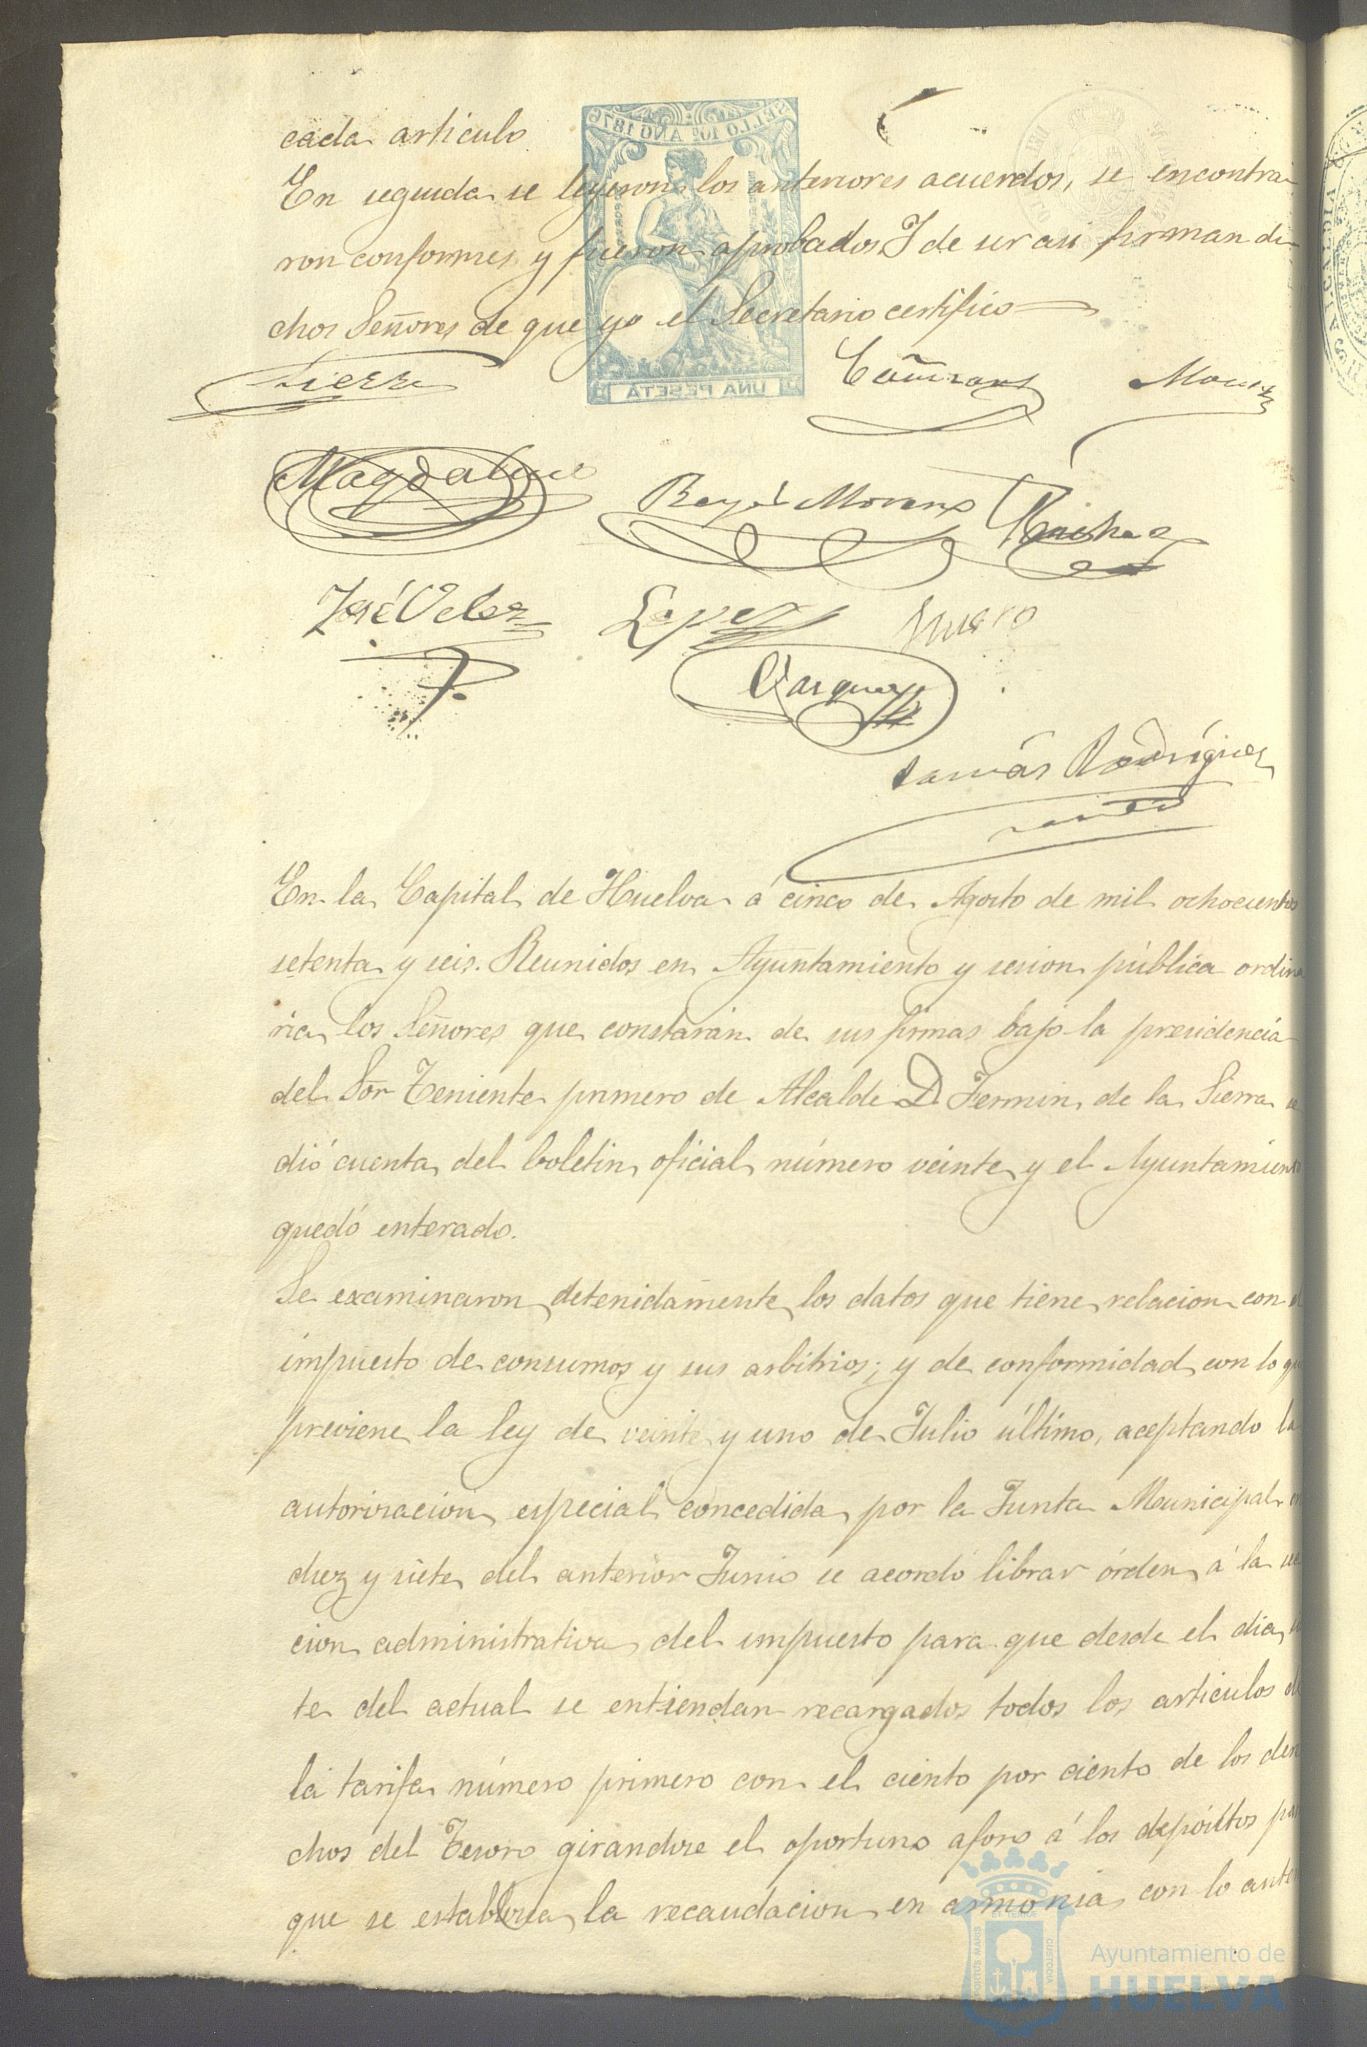 cada artículo
En seguida se leyeron los anteriores acuerdos, se encontra-
ron conformes y fueron aprobados Y de ser así firman di-
chos Señores de que yo el Secretario certifico
SELLO 10º AÑO 1876
UNA PESETA
Sierra
Magdaleno
Reyes Moreno
José Velez
Lopez
Vazquez
Tomás Rodríguez
En la Capital de Huelva á cinco de Agosto de mil ochocientos
setenta y seis. Reunidos en Ayuntamiento y sesion pública ordina
ria los Señores que constarán de sus firmas bajo la presidencia
del Sor Teniente primero de Alcalde D Fermin de la Sierra se
dió cuenta del boletin oficial número veinte y el Ayuntamiento
quedó enterado.
Se examinaron detenidamente los datos que tiene relacion con el
impuesto de consumos y sus arbitrios; y de conformidad con lo que
previene la ley de veinte y uno de Julio último, aceptando la
autorizacion especial concedida por la Junta Municipal en
diez y siete del anterior Junio se acordó librar órden á la sec
cion administrativa del impuesto para que desde el dia sie
te del actual se entiendan recargados todos los articulos de
la tarifa número primero con el ciento por ciento de los dere
chos del Tesoro girandose el oportuno aforo á los depósitos para
que se establezca la recaudacion en armonía con lo ante
ALCALDIA
PORTUS MARIS
CUSTODIA
Ayuntamiento de
HUELVA